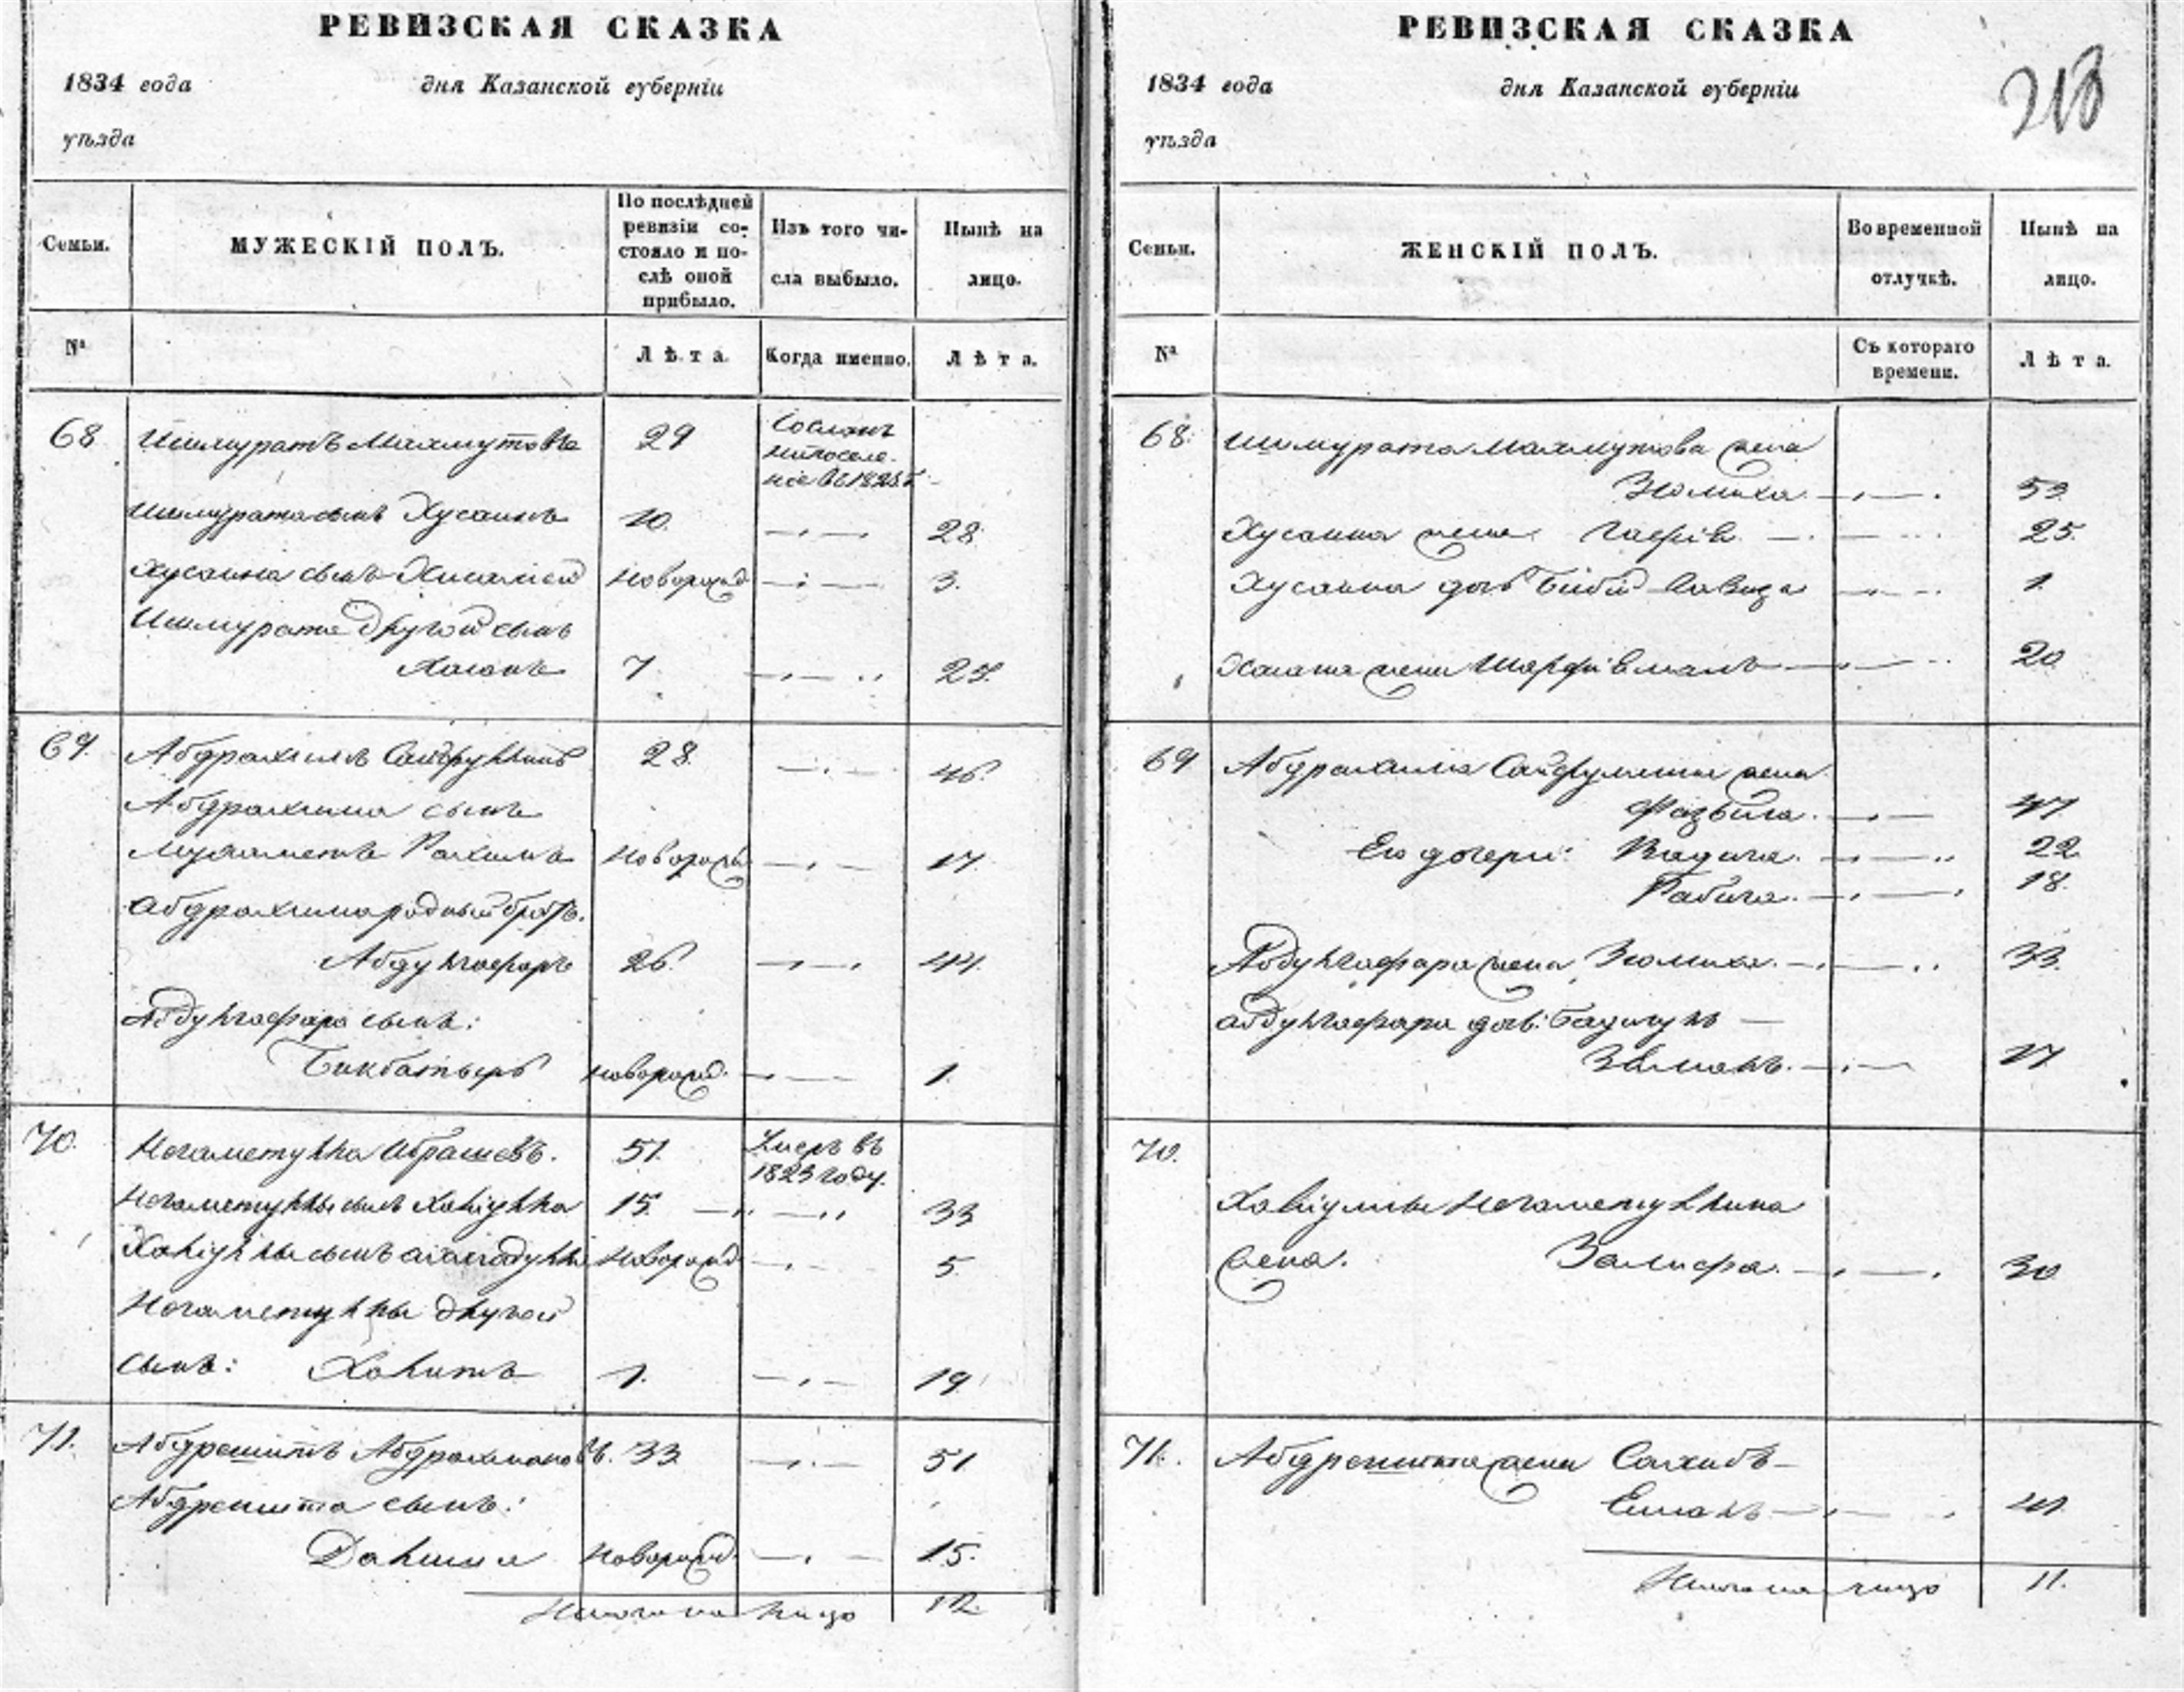 РЕВИЗСКАЯ СКАЗКА
1834 года дня Казанской губерніи
уѣзда
Семьи. МУЖЕСКІЙ ПОЛЪ. По послѣдней ревизіи состояло и послѣ оной прибыло. Изъ того числа выбыло. Нынѣ на лицо.
№ Лѣта. Когда именно. Лѣта.
68 Ишмуратъ Махмутовъ 29 Сосланъ
на поселе-
ніе въ 1825 г
Ишмурата сынъ Хусаинъ 10 28
Хусаина сынъ новорожд 3.
Ишмурата другой сынъ
Хасанъ 7 25.
69. Абдрахимъ Сайфуллинъ 28 46
Абдрахима сынъ
Мухаметъ Рахимъ новорожд 17.
Абдрахима родный братъ.
Абдулгафаръ 26 44.
Абдулгафара сынъ:
Бикбатыръ новорожд. 1.
70. Негаметулла Абрашевъ. 51. Умеръ въ
1823 году.
Негаметуллы сынъ Хабіулла 15 33
Хабіуллы сынъ новорожд 5
Негаметуллы другой
сынъ: Хабитъ 1. 19
71. Абдрешитъ Абдрахмановъ. 33 51
Абдрешита сынъ:
новорожд. 15.
Итого на лицо 12.
РЕВИЗСКАЯ СКАЗКА
213
1834 года дня Казанской губерніи
уѣзда
Семьи. ЖЕНСКІЙ ПОЛЪ. Во временной отлучкѣ. Нынѣ на лицо.
№ Съ котораго времени. Лѣта.
68. Ишмурата Махмутова жена
Зюлиха. 53
Хусаина жена 25.
Хусаина дочь Биби 1.
Хасана жена 20
69 Абдрахима Сайфуллина жена
Фазыла. 47
Его дочери: 22
Рабига. 18.
Абдулгафара жена Зюлиха. 33.
Абдулгафара дочь:
Земалъ. 17
70.
Хабіуллы Негаметуллина
жена. Залифа. 30
71. Абдрешита жена Сахибъ-
Емалъ 41
Итого на лицо 11.